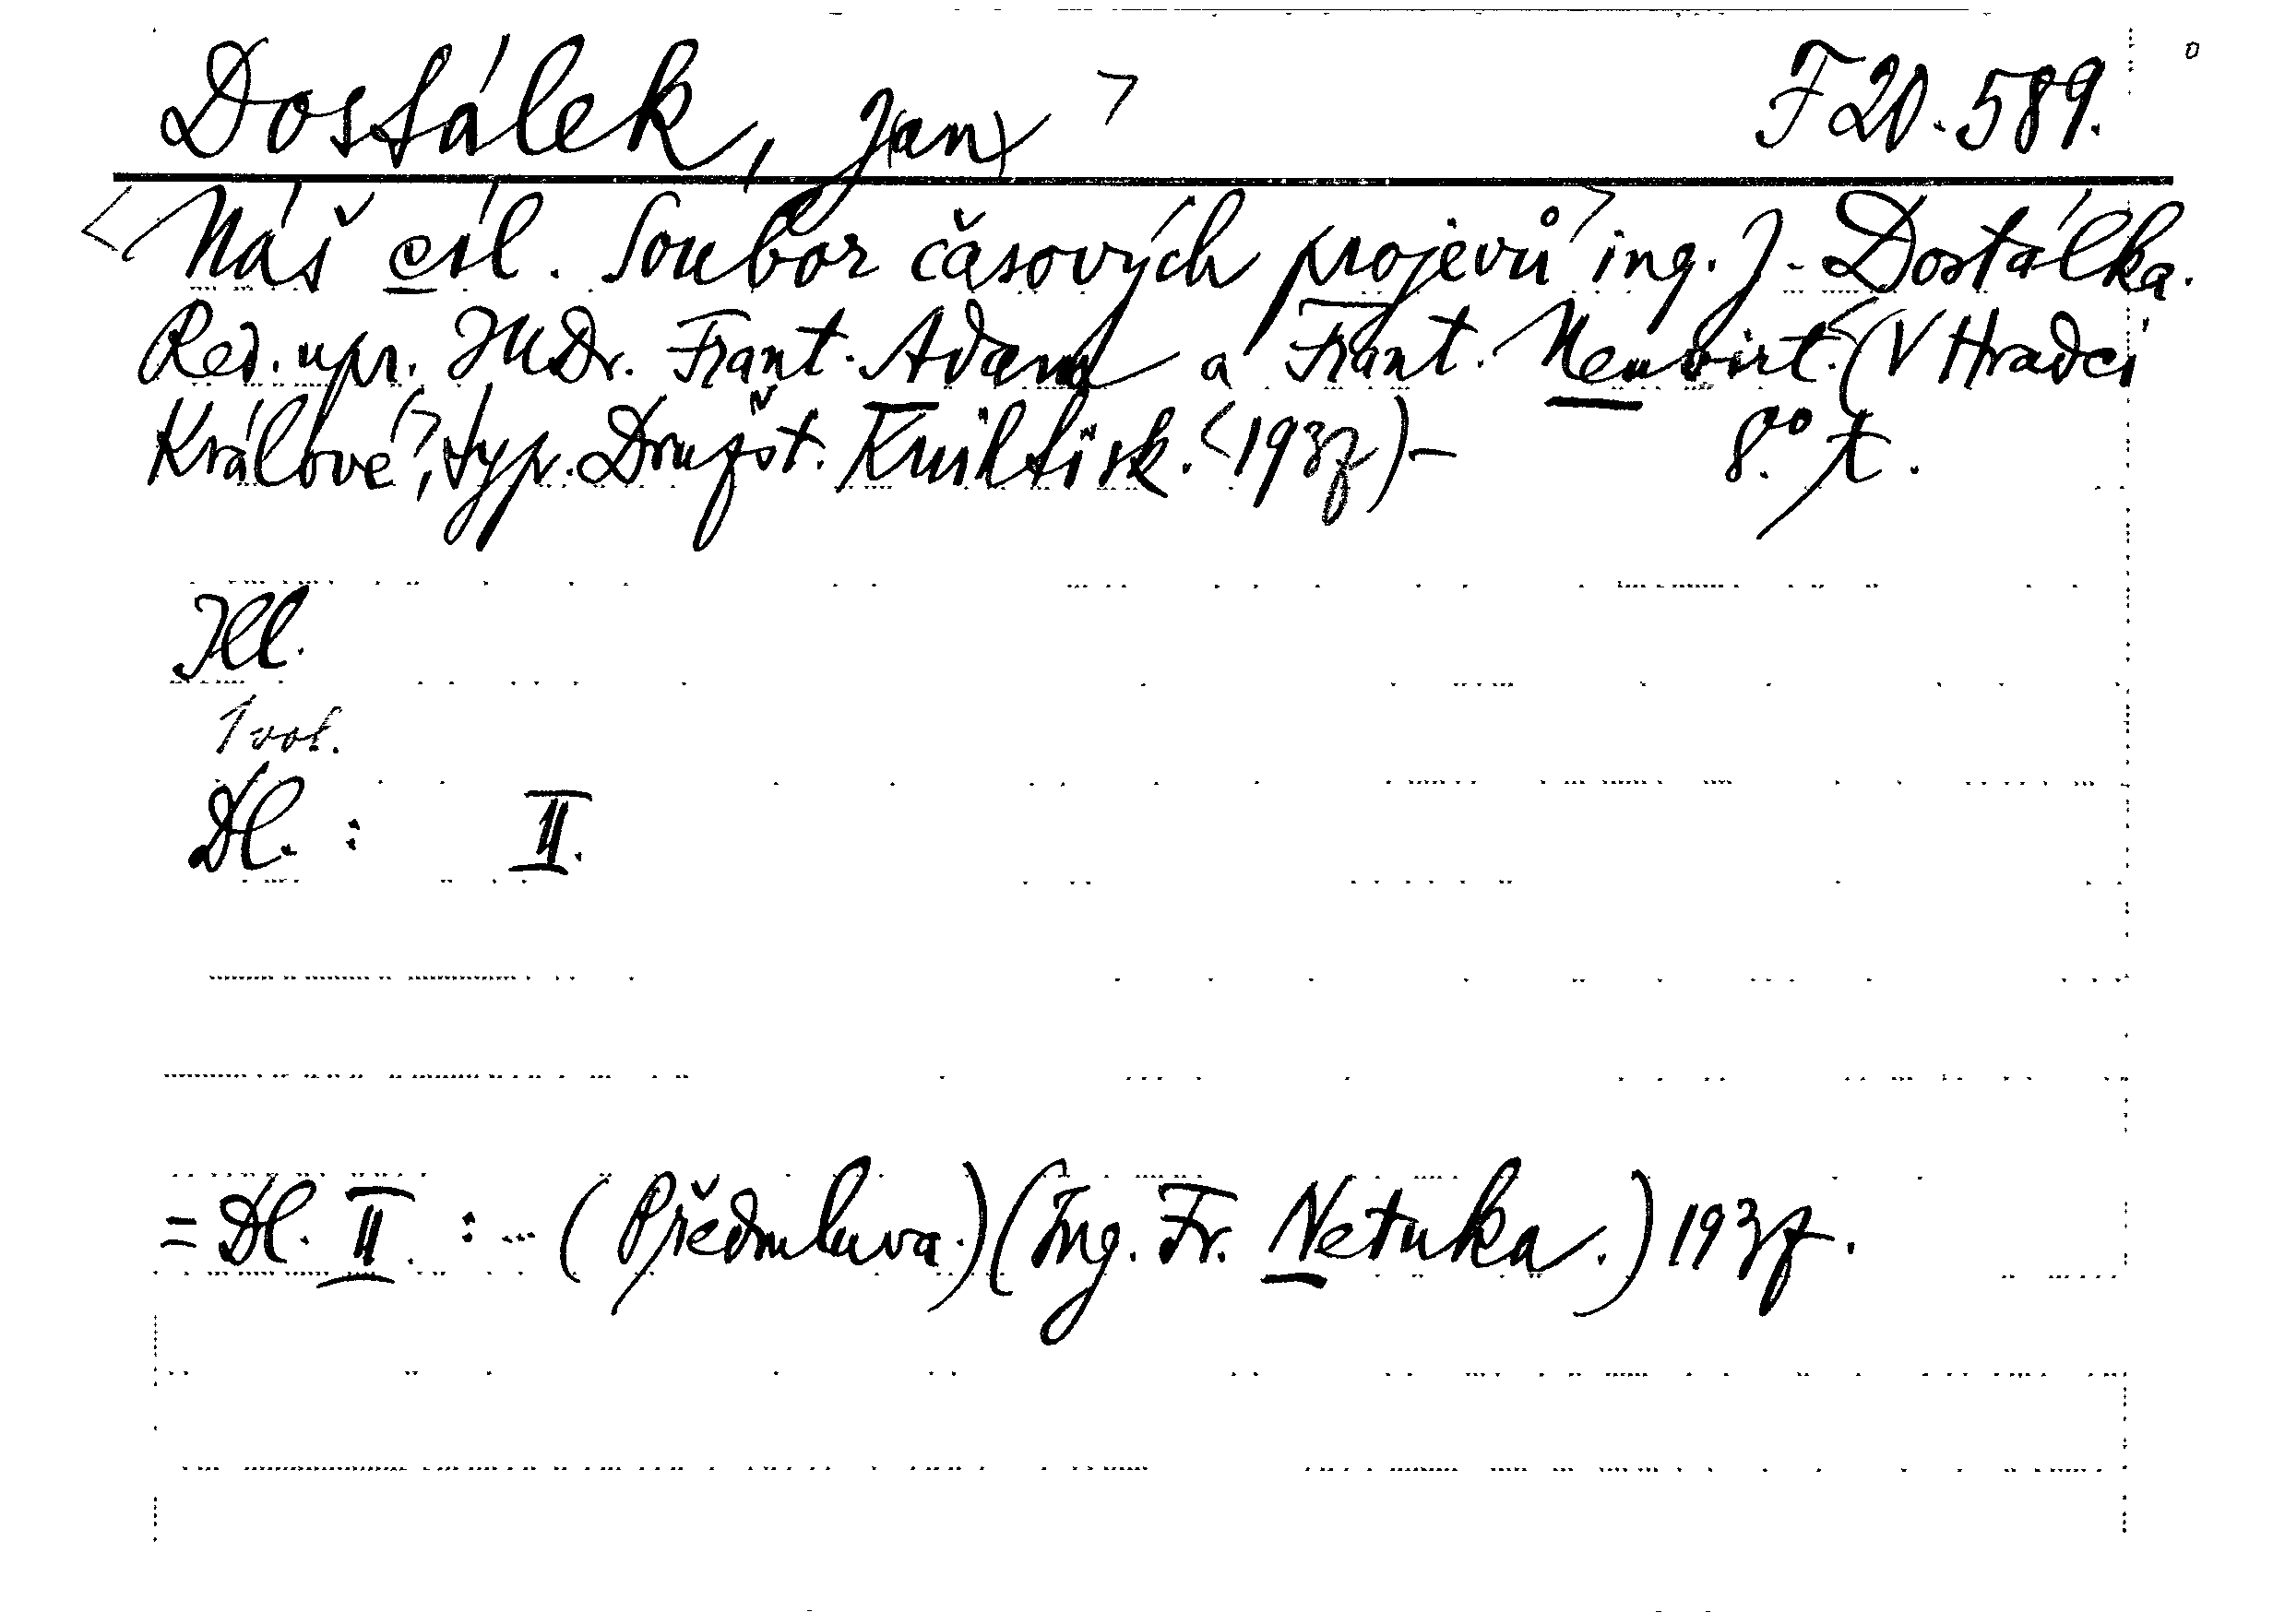 Dostálek, J(an) F 20.589.
<Náš cíl. Soubor časových projevů> ing. J. Dostálka.
Red. upr. JUDr. Frant. Adam a Frant. Neuwirt. <(V Hradci
Králové>, typ. Družst. Knihtisk. <1937)- 8.° t.
Ill.
1 vol.
Dl. : II.
= Dl. II. : - (Předmluva.) (Ing. Fr. Netuka.) 1937.